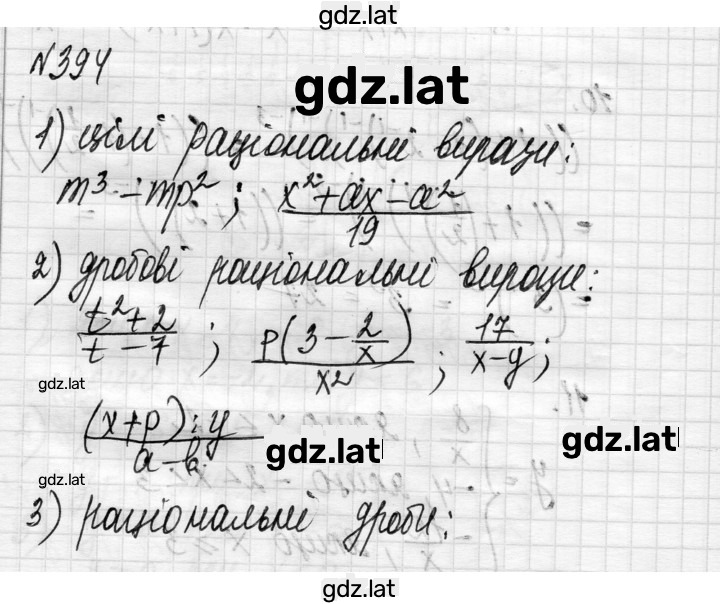 gdz.lat
№394
gdz.lat
1) цілі раціональні вирази:
m³ - mp²; (x² + ax - a²)/19
2) дробові раціональні вирази:
(t² + 2)/(t - 7); p(3 - 2/x)/x2; 17/(x - y);
gdz.lat
(x + p) : y/(a - b)
gdz.lat
gdz.lat
3) раціональні дроби:
gdz.lat
gdz.lat